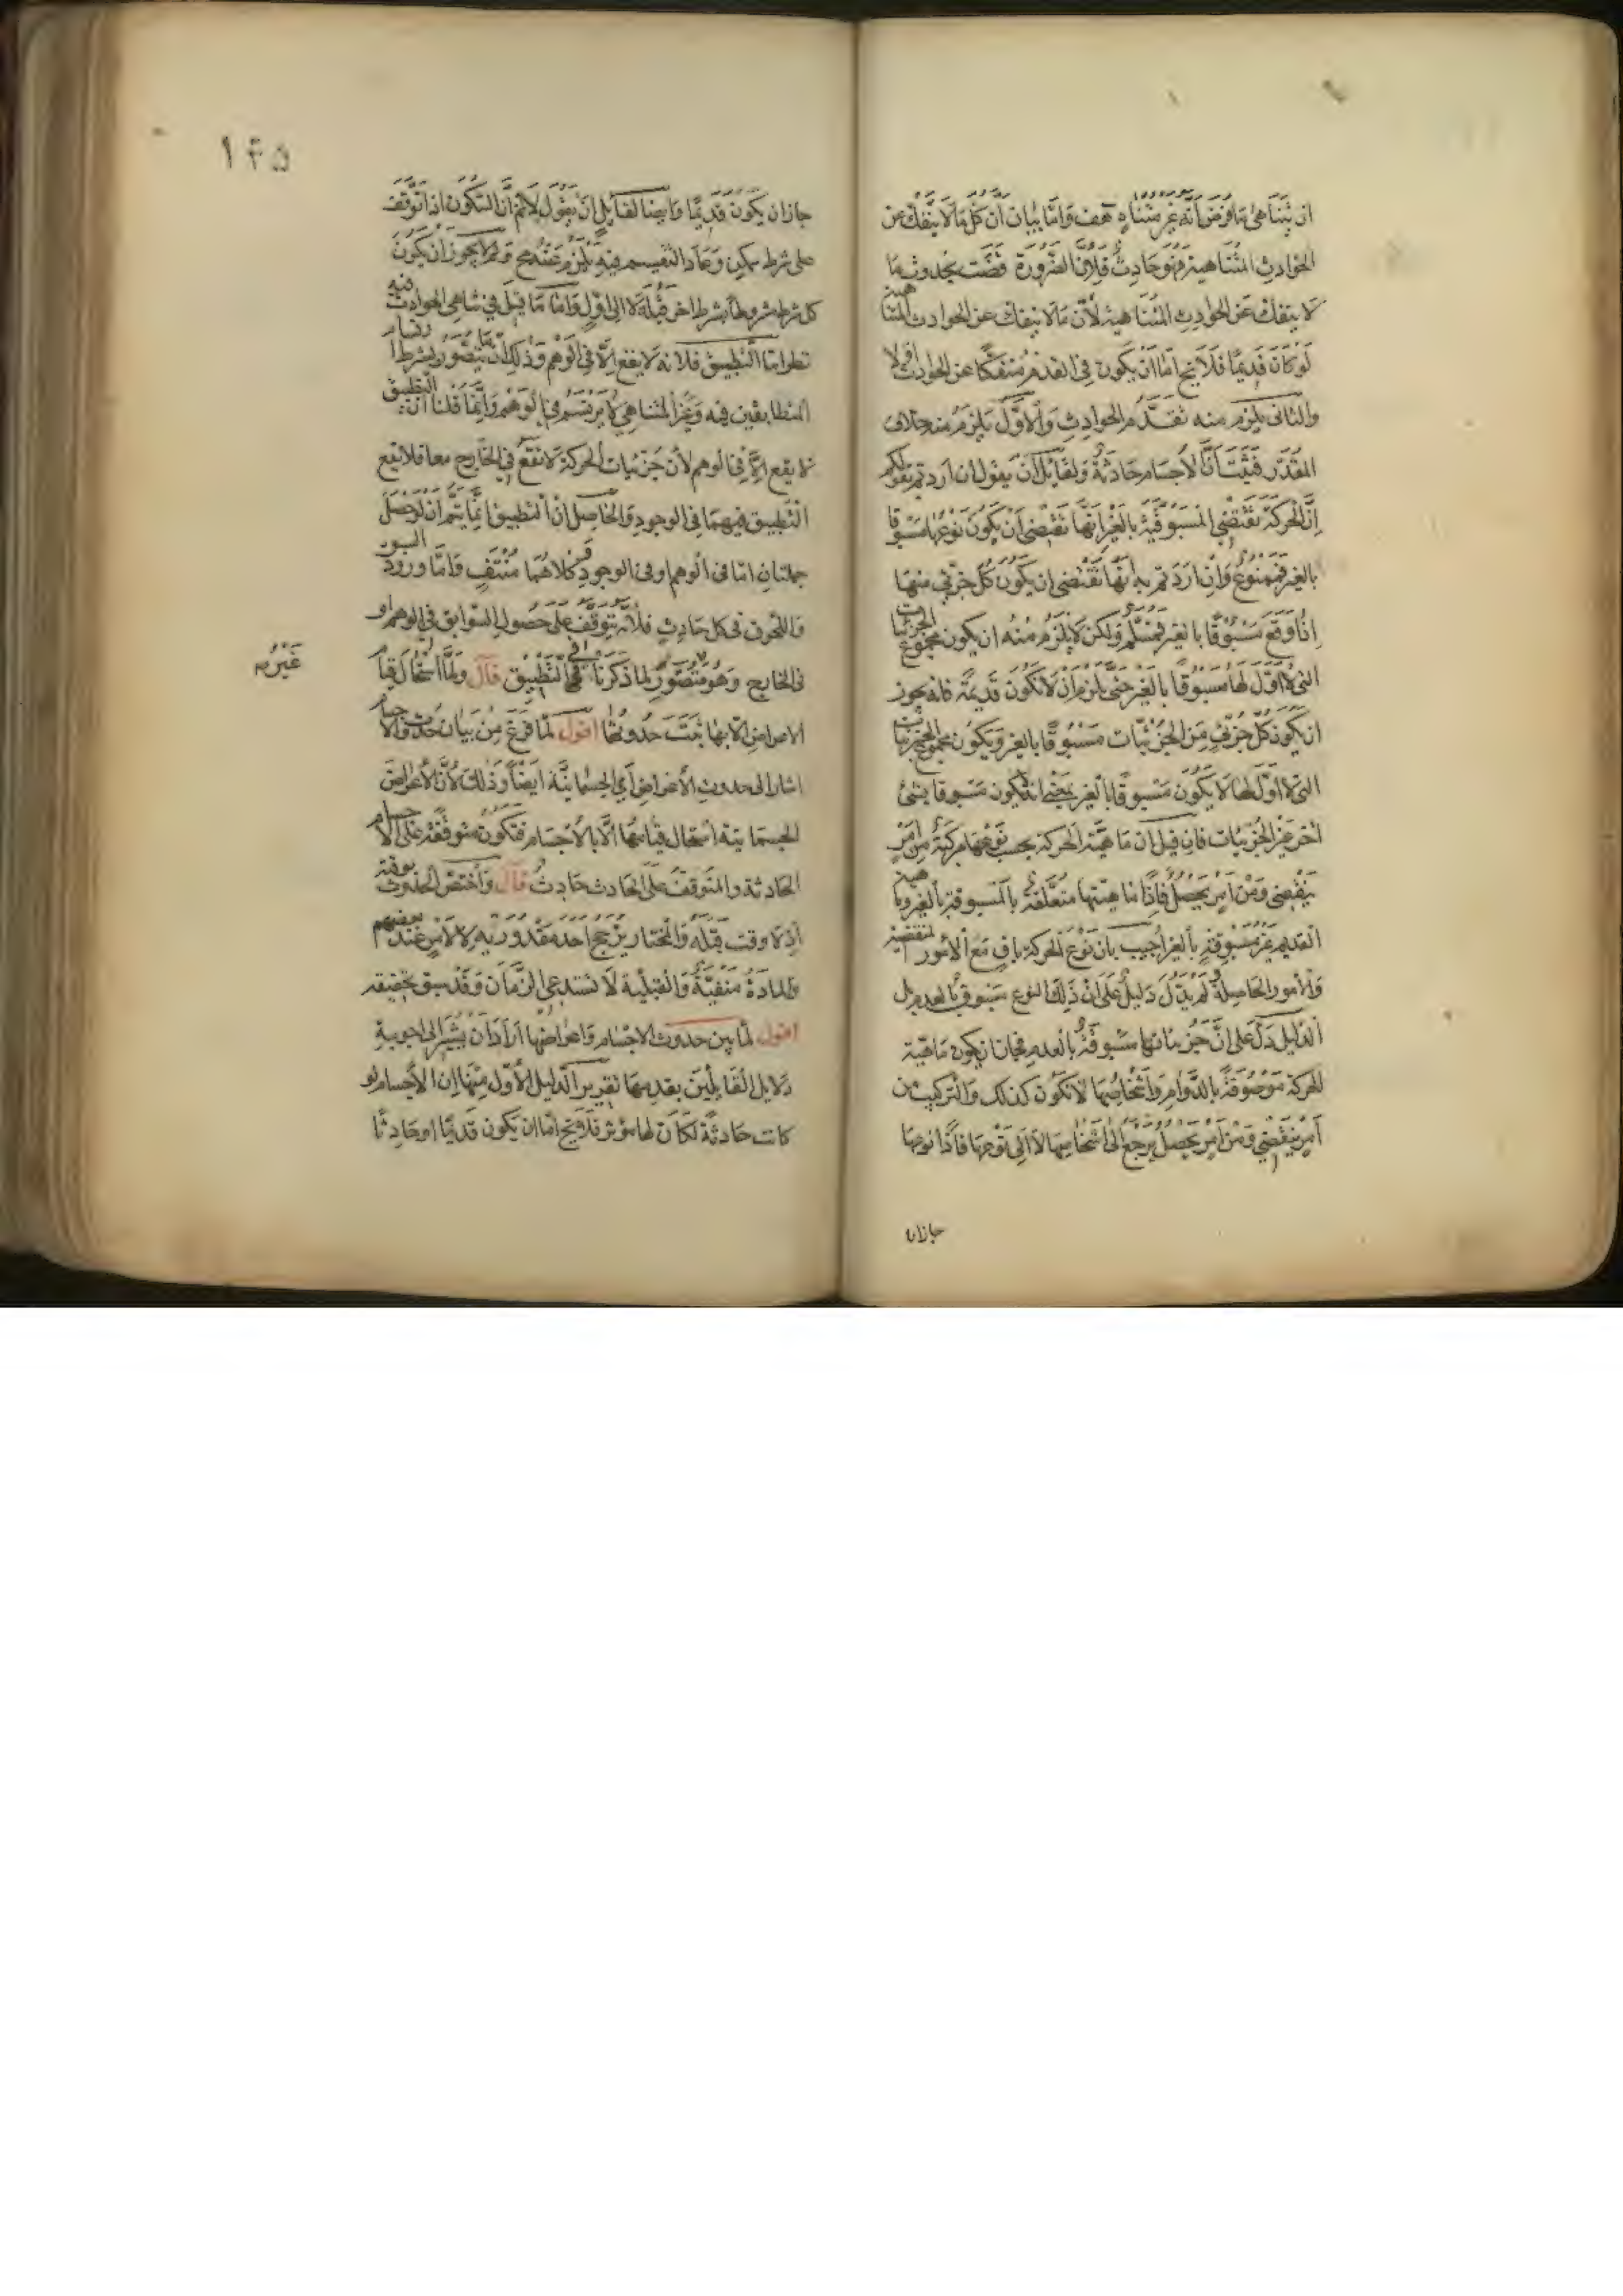 ان يتناهى ما فرض انه غير متناه هف واما بيان ان كل ما لا ينفك عن
الحوادث المتناهية فهو حادث فلان الضرورة قضت بحدوث ما
لا ينفك عن الحوادث المتناهية لان ما لا ينفك عن الحوادث المتناهية
لو كان قديما فلا يخ اما ان يكون فى القدم منفكا عن الحوادث اولا
والثانى يلزم منه تقدم الحوادث والاول يلزم منه خلاف
المقدر فثبت ان الاجسام حادثة ولقائل ان يقول ان اردتم بقولكم
ان الحركة تقتضى المسبوقية بالغير انها تقتضى ان يكون نوعها مسبوقا
بالغير فممنوع وان اردتم به انها تقتضى ان يكون كل جزئى منها
اذا وقع مسبوقا بالغير فمسلم ولكن لا يلزم منه ان يكون مجموع الجزئيات
التى لا اول لها مسبوقا بالغير حتى يلزم ان لا يكون قديمة فانه يجوز
ان يكون كل جزئى من الجزئيات مسبوقا بالغير ويكون مجموع الجزئيات
التى لا اول لها لا يكون مسبوقا بالغير بمعنى انه لا يكون مسبوقا بشئ
آخر غير الجزئيات فان قيل ان ماهية الحركة بحسب نوعها مركبة من امر
ينقضى ومن امر يحصل فاذا ماهيتها متعلقة بالمسبوقية بالغير وماهية
القديم غير مسبوقة بالغير اجيب بان نوع الحركة باق مع الامور المنقضية
والامور الحاصلة لم يدل دليل على ان ذلك النوع مسبوق بالعدم بل
الدليل دل على ان جزئياتها مسبوقة بالعدم فجاز ان يكون ماهية
الحركة موصوفة بالدوام واشخاصها لا تكون كذلك والتركيب من
امر ينقضى ومن امر يحصل يرجع الى اشخاصها لا الى نوعها فاذا نوعها
جازان
١٤٥
جاز ان يكون قديما وايضا لقائل ان يقول لا نم ان السكون اذا توقف
على شرط يمكن وعاد التقسيم فيه يلزم منه مح ولم لا يجوز ان يكون
كل شرط مشروطا بشرط آخر قبله لا الى اول واما ما قيل فى تناهى الحوادث ففيه
نظر اما التطبيق فلانه لا يقع الا فى الوهم وذلك انما يتصور بشرط ارتسام
المتطابقين فيه وغير المتناهى لا يرتسم فى الوهم وانما قلنا ان التطبيق
لا يقع الا فى الوهم لان جزئيات الحركة لا تقع فى الخارج معا فلا يقع
التطبيق فيهما فى الوجود والحاصل ان التطبيق انما يتم ان لو حصل
جملتان اما فى الوهم او فى الوجود وكلاهما منتف واما ورود السبق
واللحوق فى كل حادث فلانه يتوقف على حصول السوابق فى الوهم او
فى الخارج وهو متصور لما ذكرنا فى التطبيق قال ولما استحال قيام
الاعراض الا بها ثبت حدوثها اقول لما فرغ من بيان حدوث الاجسام
اشار الى حدوث الاعراض اى الجسمانية ايضا وذلك لان الاعراض
الجسمانية استحال قيامها الا بالاجسام فتكون متوقفة على الاجسام
الحادثة والمتوقف على الحادث حادث قال واختص الحدوث بوقته
اذ لا وقت قبله والمختار يرجح احد مقدوريه لا لامر عند بعضهم
والمادة منفية والقبلية لا تستدعى الزمان وقد سبق تحقيقه
اقول لما بين حدوث الاجسام واعراضها اراد ان يشير الى اجوبة
دلايل القائلين بقدمها تقرير الدليل الاول منها ان الاجسام لو
كانت حادثة لكان لها مؤثر فلا يخ اما ان يكون قديما او حادثا